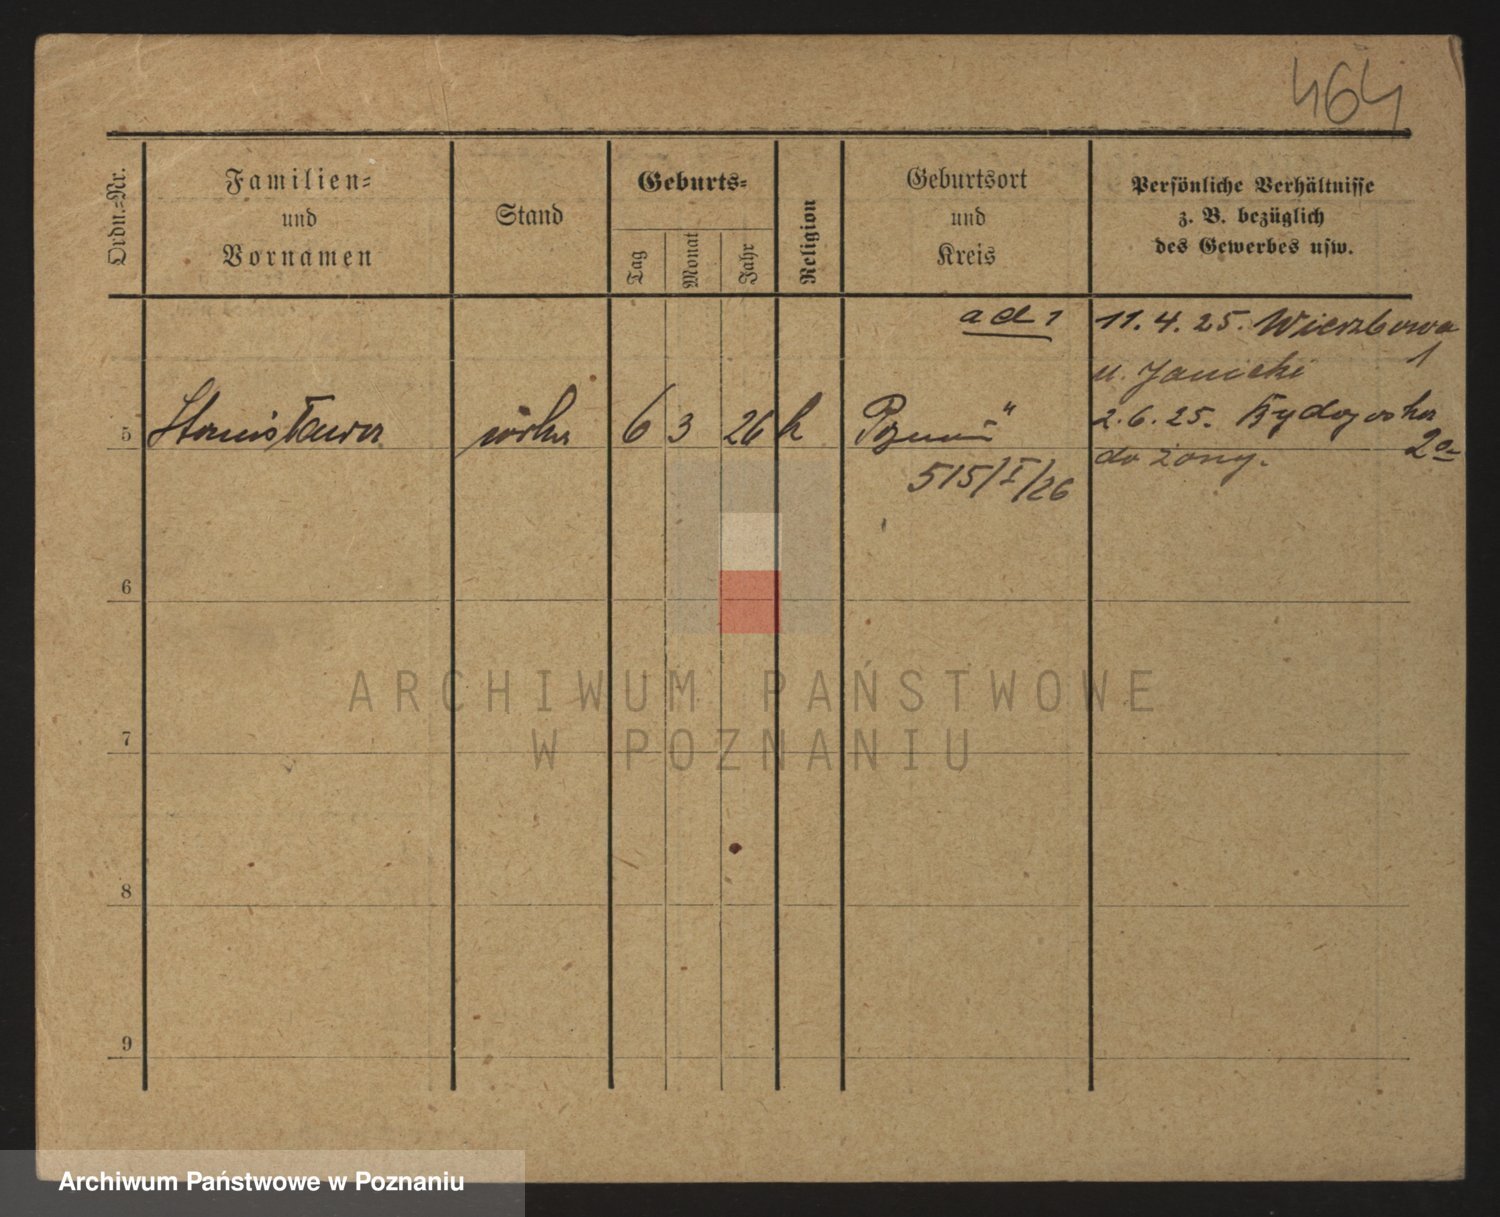 464
Ordn.-Nr.
Familien-
und
Vornamen
Stand
Geburts-
Tag
Monat
Jahr
Religion
Geburtsort
und
Kreis
Persönliche Verhältnisse
z. B. bezüglich
des Gewerbes usw.
ad 1
11. 4. 25. Wierzbowa
1
u. Janicki
2. 6. 25. Bydgoska
2a
do żony.
5 Stanisława córka 6 3 26 k Poznań "
515/I/26
6
7
8
9
ARCHIWUM PAŃSTWOWE
W POZNANIU
Archiwum Państwowe w Poznaniu